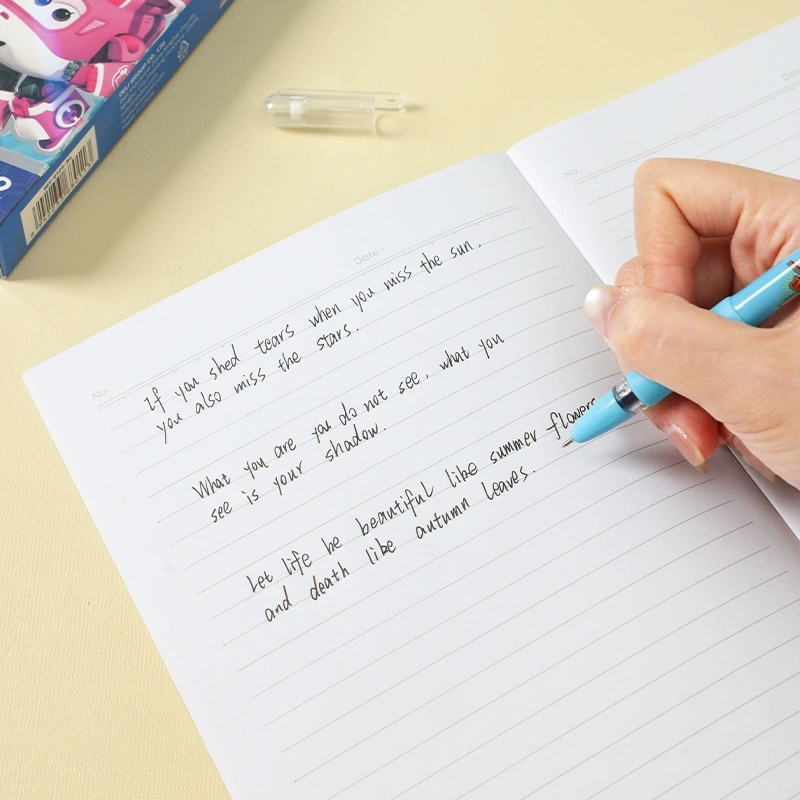 DELI GROUP CO., LTD.
Date:
No
No.
If you shed tears when you miss the sun,
you also miss the stars.
What you are you do not see, what you
see is your shadow.
Let life be beautiful like summer flowers
and death like autumn leaves.